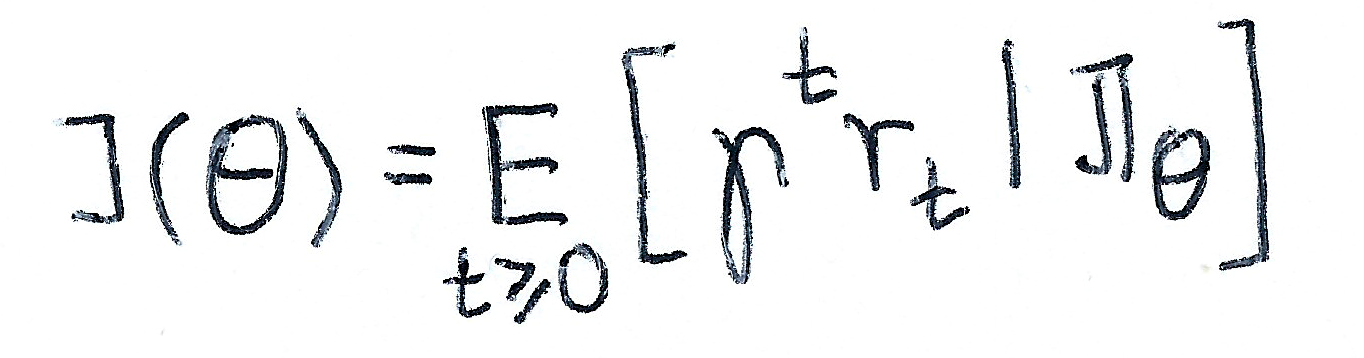 J(θ) = E_{t≥0} [γ^t r_t | π_θ]